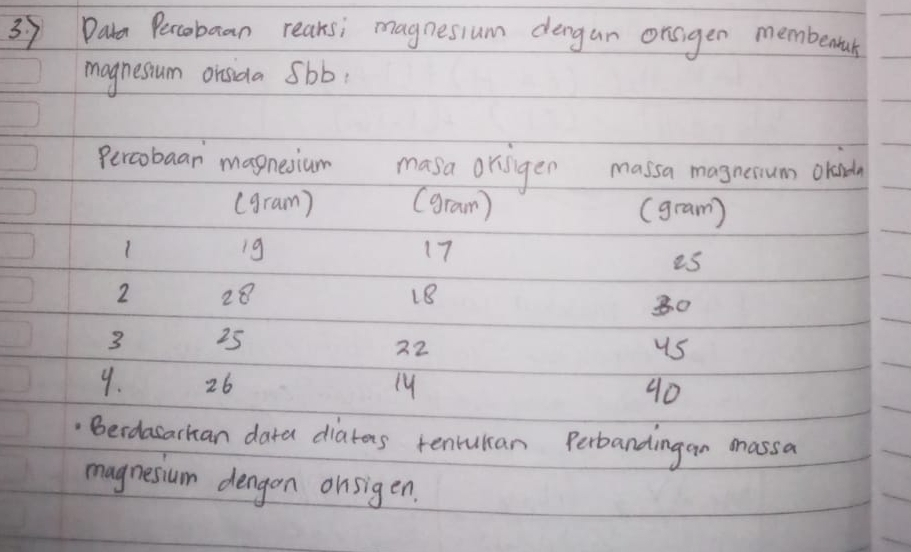 3.) Data Percobaan reaksi magnesium dengan oksigen membentuk
magnesium oksida Sbb :
Percobaan magnesium masa oksigen massa magnesium oksida
(gram) (gram) (gram)
1 19 17 25
2 28 18 30
3 25 22 45
4. 26 14 40
• Berdasarkan data diatas tentukan Perbandingan massa
magnesium dengan oksigen.